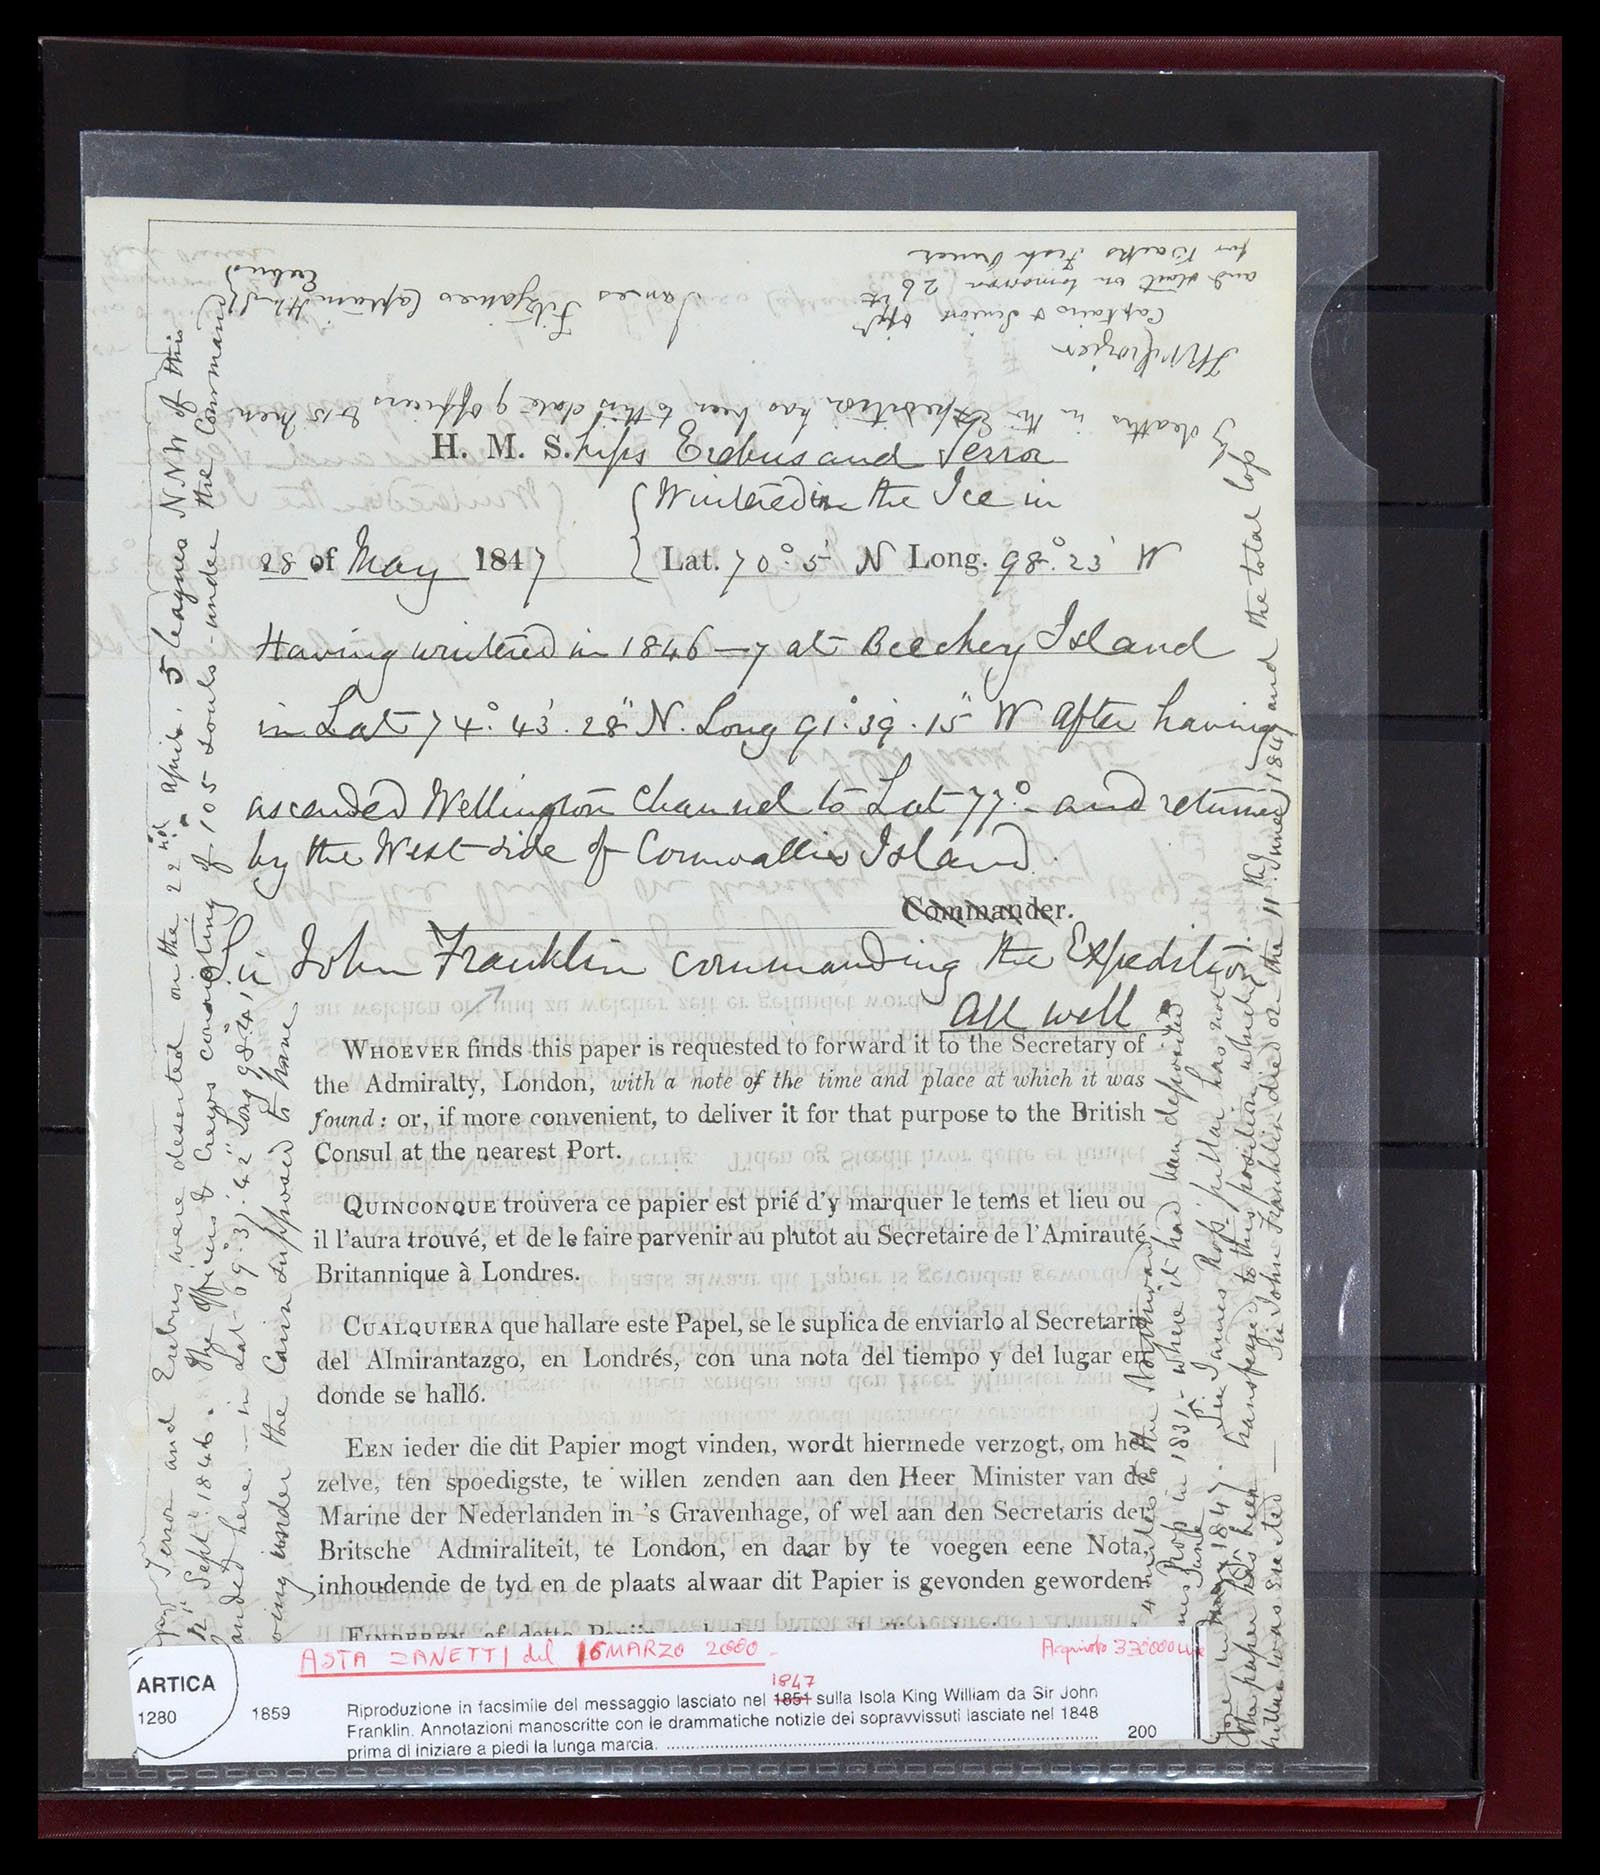 H. M. S.hips Erebus and Terror
{ Wintered in the Ice in
28 of May 1847 { Lat. 70°. 5' N Long. 98°. 23' W
Having wintered in 1846—7 at Beechey Island
in Lat 74°. 43'. 28" N. Long 91°. 39'. 15" W after having
ascended Wellington Channel to Lat 77°- and returned
by the West side of Cornwallis Island.
Commander.
Sir John Franklin commanding the Expedition.
All well
WHOEVER finds this paper is requested to forward it to the Secretary of
the Admiralty, London, with a note of the time and place at which it was
found: or, if more convenient, to deliver it for that purpose to the British
Consul at the nearest Port.
QUINCONQUE trouvera ce papier est prié d'y marquer le tems et lieu ou
il l'aura trouvé, et de le faire parvenir au plutot au Secretaire de l'Amirauté
Britannique à Londres.
CUALQUIERA que hallare este Papel, se le suplica de enviarlo al Secretario
del Almirantazgo, en Londrés, con una nota del tiempo y del lugar en
donde se halló.
EEN ieder die dit Papier mogt vinden, wordt hiermede verzogt, om het
zelve, ten spoedigste, te willen zenden aan den Heer Minister van de
Marine der Nederlanden in 's Gravenhage, of wel aan den Secretaris der
Britsche Admiraliteit, te London, en daar by te voegen eene Nota,
inhoudende de tyd en de plaats alwaar dit Papier is gevonden geworden
Terror and Erebus were deserted on the 22nd April, 5 leagues N.N.W of this
Sept. 1846. The Officers & Crews consisting of 105 souls under the Command
here — in Lat. 69°. 37'. 42" Long 98°. 41'
under the Cairn supposed to have
4 miles to the Northward
Ross in 1831 — where it had been deposited
June 1847. Sir James Ross' pillar has not
the paper has been transferred to this position which
pillar was erected — Sir John Franklin died on the 11th June 1847 and the total loss
by deaths in the Expedition has been to this date 9 Officers & 15 Men
James Fitzjames Captain H.M.S.
Erebus
F R M Crozier
Captain & Senior Offr
and start on tomorrow 26th
for Backs Fish River
ASTA ZANETTI del 16 MARZO 2000
Acquisto 330000 lire
ARTICA
1280
1859
1847
Riproduzione in facsimile del messaggio lasciato nel 1851 sulla Isola King William da Sir John
Franklin. Annotazioni manoscritte con le drammatiche notizie dei sopravvissuti lasciate nel 1848
prima di iniziare a piedi la lunga marcia. ........ 200